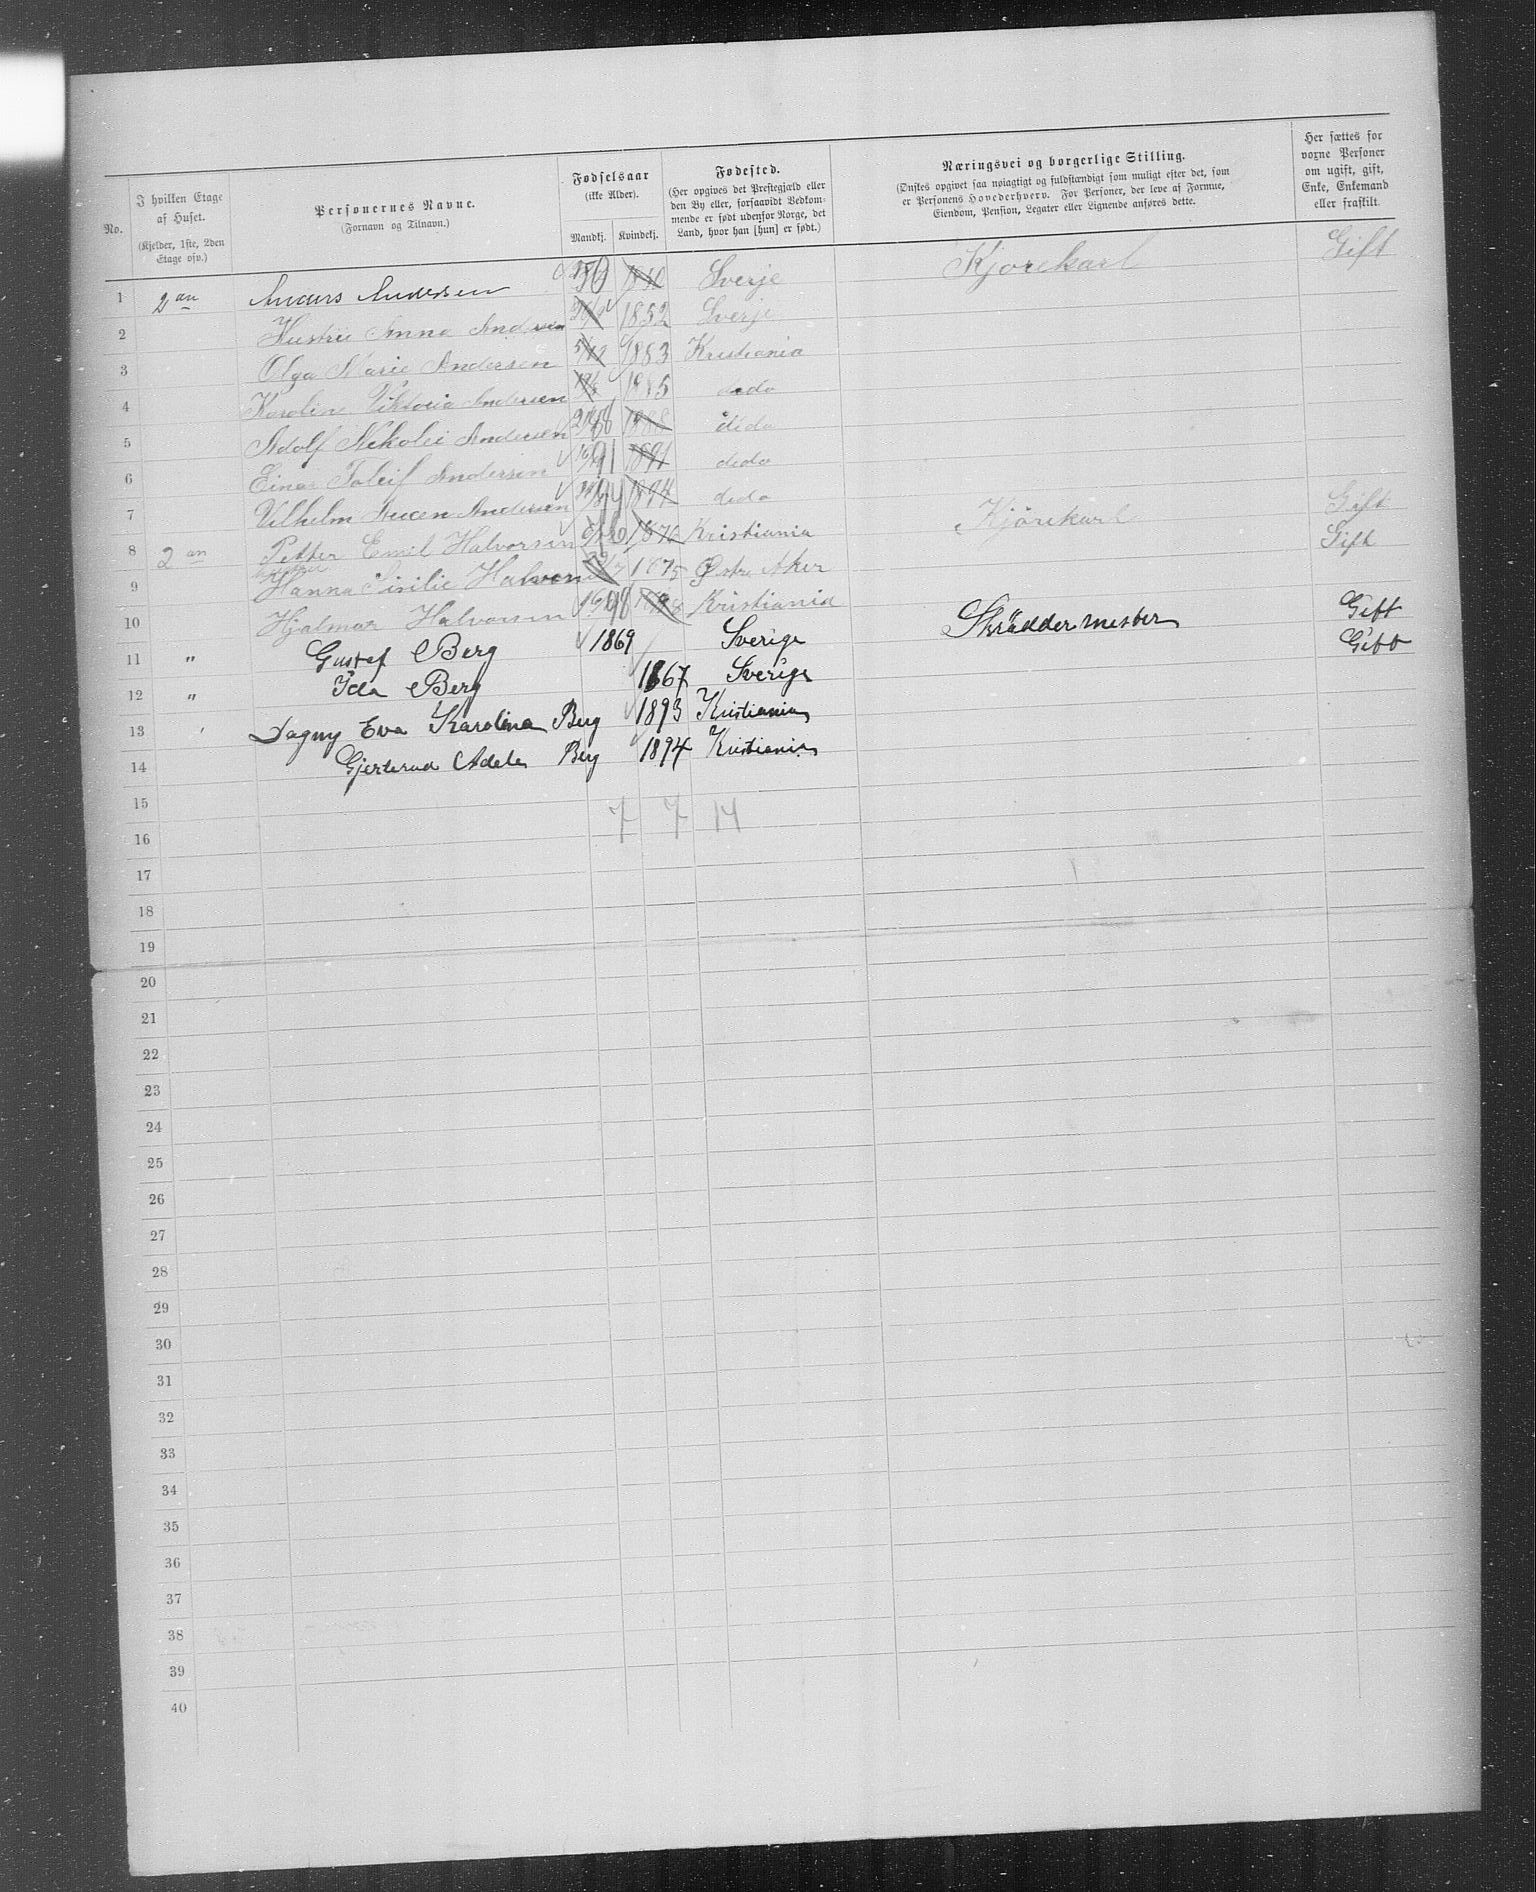 No.
I hvilken Etage af Huset.
(Kjelder, 1ste, 2den Etage osv.)
Personernes Navne.
(Fornavn og Tilnavn.)
Fødselsaar
(ikke Alder).
Mandkj. Kvindekj.
Fødested.
(Her opgives det Prestegjæld eller
den By eller, forsaavidt Vedkom-
mende er født udenfor Norge, det
Land, hvor han [hun] er født.)
Næringsvei og borgerlige Stilling.
(Ønskes opgivet saa nøiagtigt og fuldstændigt som muligt efter det, som
er Personens Hovederhverv. For Personer, der leve af Formue,
Eiendom, Pension, Legater eller Lignende anføres dette.
Her sættes for
voxne Personer
om ugift, gift,
Enke, Enkemand
eller fraskilt.
1 2an Anders Andersen 50 1850 Sverje Kjørekarl Gift
2 Hustru Anna Andersen 1852 Sverje
3 Olga Marie Andersen 1883 Kristiania
4 Karoline Viktoria Andersen 1885 dedo
5 Adolf Nekolei Andersen 88 1888 dido
6 Einar Toleif Andersen 91 1891 dedo
7 Vilhelm Andersen 94 1894 dedo
8 2an Petter Emil Halvorsen 1876 Kristiania Kjörekarl Gift
9 Hanna Sisilie Halvorsen 1875 Østre Aker Gift
10 Hjalmar Halvorsen 98 Kristiania
11 " Gustaf Berg 1869 Sverige Skräddermester Gift
12 " Ida Berg 1867 Sverige Gift
13 Dagny Eva Karolina Berg 1893 Kristiania
14 Gjerterud Adele Berg 1894 Kristiania
15
16 7 7 14
17
18
19
20
21
22
23
24
25
26
27
28
29
30
31
32
33
34
35
36
37
38
39
40